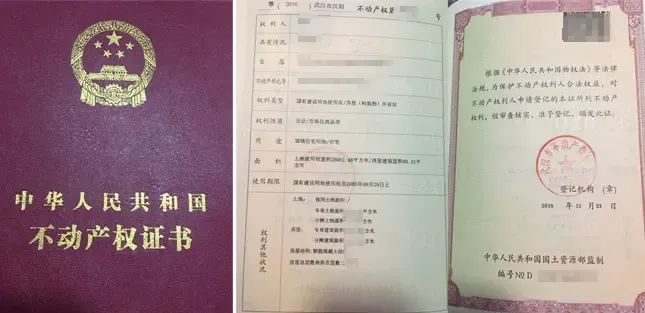 中华人民共和国
不动产权证书
（2016）武汉市汉阳不动产权第 号
权利人
共有情况
坐落
不动产单元号
权利类型 国有建设用地使用权/房屋（构筑物）所有权
权利性质 出让/市场化商品房
用途 城镇住宅用地/住宅
面积 土地使用权面积 平方米/房屋建筑面积 平方米
使用期限 国有建设用地使用权至 止
权利其他状况
土地：使用土地面积：/
专有土地面积： 平方米
分摊土地面积： 平方米
房屋：专有建筑面积： 平方米
分摊建筑面积： 平方米
房屋结构：钢筋混凝土结
房屋总层数和所在层数：
根据《中华人民共和国物权法》等法律
法规，为保护不动产权利人合法权益，对
不动产权利人申请登记的本证所列不动产
权利，经审查核实，准予登记，颁发此证。
登记机构（章）
2016 年 12 月 23 日
中华人民共和国国土资源部监制
编号 № D